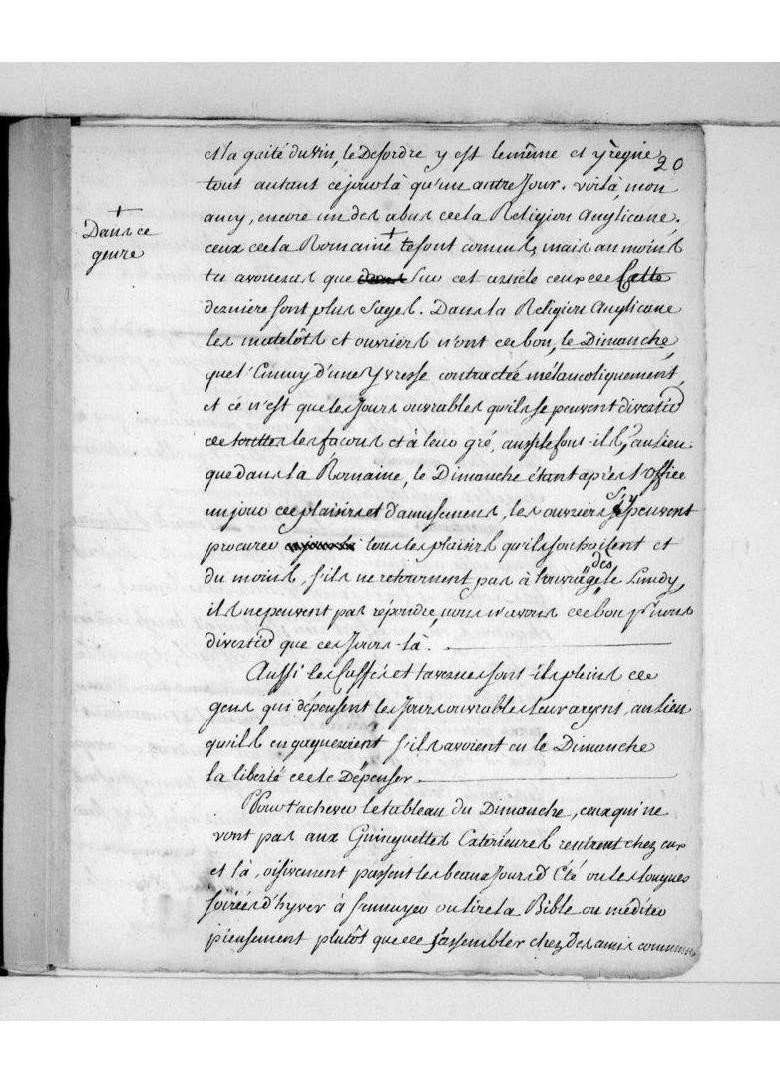 20
et la gaité du vin, le Desordre y est le même et y règne
tout autant ce jour là qu'un autre Jour. voilà, mon
amy, encore un des abus de la Religion Anglicane.
+
Dans ce
genre
ceux de la Romaine + te sont connus, mais au moins
tu avoueras que dans sur cet article ceux de Cette
derniere sont plus sages. Dans la Religion Anglicane
les matelôts et ouvriers n'ont de bon, le Dimanche,
que l'Ennuy d'une Yvresse contractée mélancoliquement,
et ce n'est que les Jours ouvrables qu'ils se peuvent divertir
de toutes les façons et à leur gré, aussi le font-ils, au lieu
que dans la Romaine, le Dimanche étant après l'office
un jour de plaisirs et d'amusemens, les ouvriers s'y peuvent
procurer tous les plaisirs qu'ils souhaitent et
du moins, s'ils ne retournent pas à l'ouvrage dès le Lundy,
ils ne peuvent pas répondre, nous n'avons de bon pr. nous
divertir que ces Jours-là.
Aussi les Caffés et tavernes sont-ils pleins de
gens qui dépensent les Jours ouvrables leur argent, au lieu
qu'ils en gagneroient s'ils avoient eu le Dimanche
la liberté de le Dépenser.
Pour t'achever le tableau du Dimanche, ceux qui ne
vont pas aux Guinguettes Extérieures rentrent chez eux
et là, oisivement passent les beaux Jours d'Eté ou les longues
soirées d'hyver à s'ennuyer ou lire la Bible ou méditer
pieusement plutôt que de s'assembler chez des amis communs